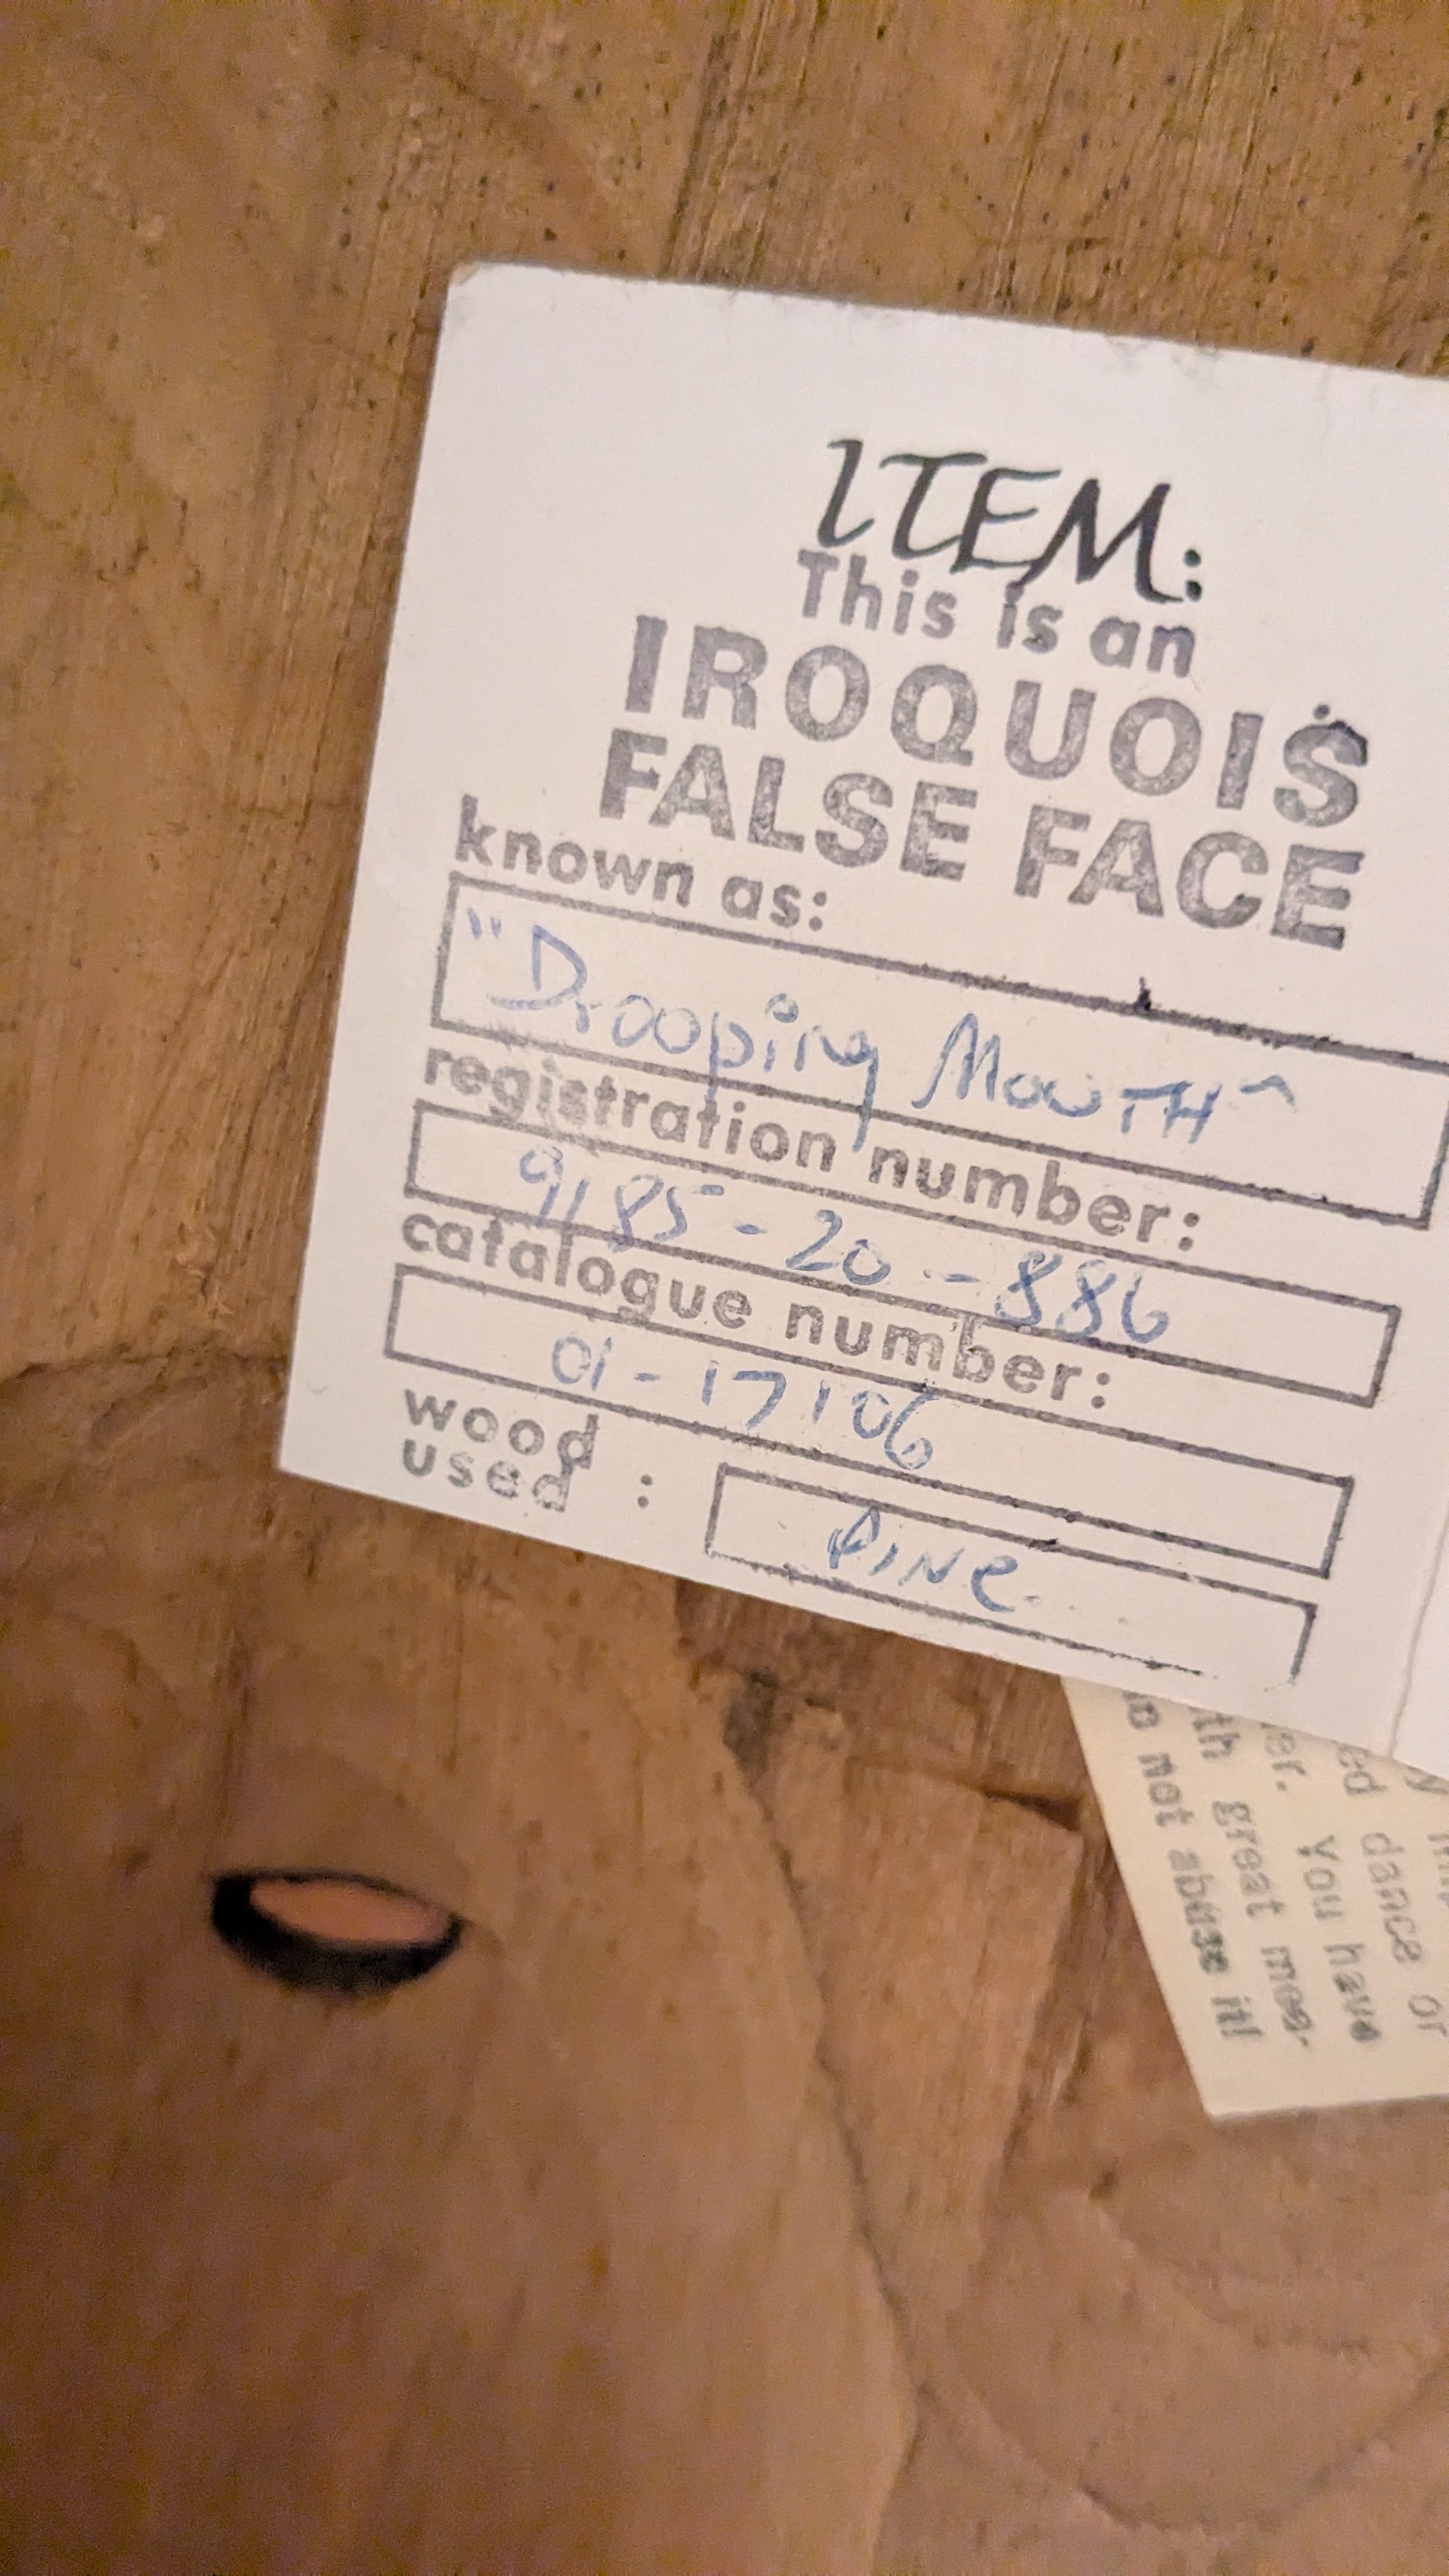 ITEM:
This is an
IROQUOIS
FALSE FACE
known as:
"Drooping MouTH"
registration number:
9185-20-886
catalogue number:
01-17106
wood
used :
PiNe
dance or
You have
th great mes-
not abuse it!